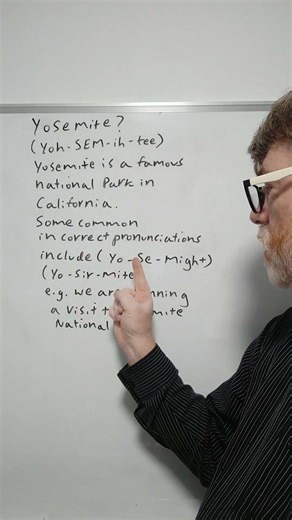 Yosemite?
(Yoh-SEM-ih-tee)
Yosemite is a famous
national Park in
California.
Some common
in correct pronunciations
include (Yo-Se-Might)
(Yo-Sir-Mite
e.g. we are
a visit
National